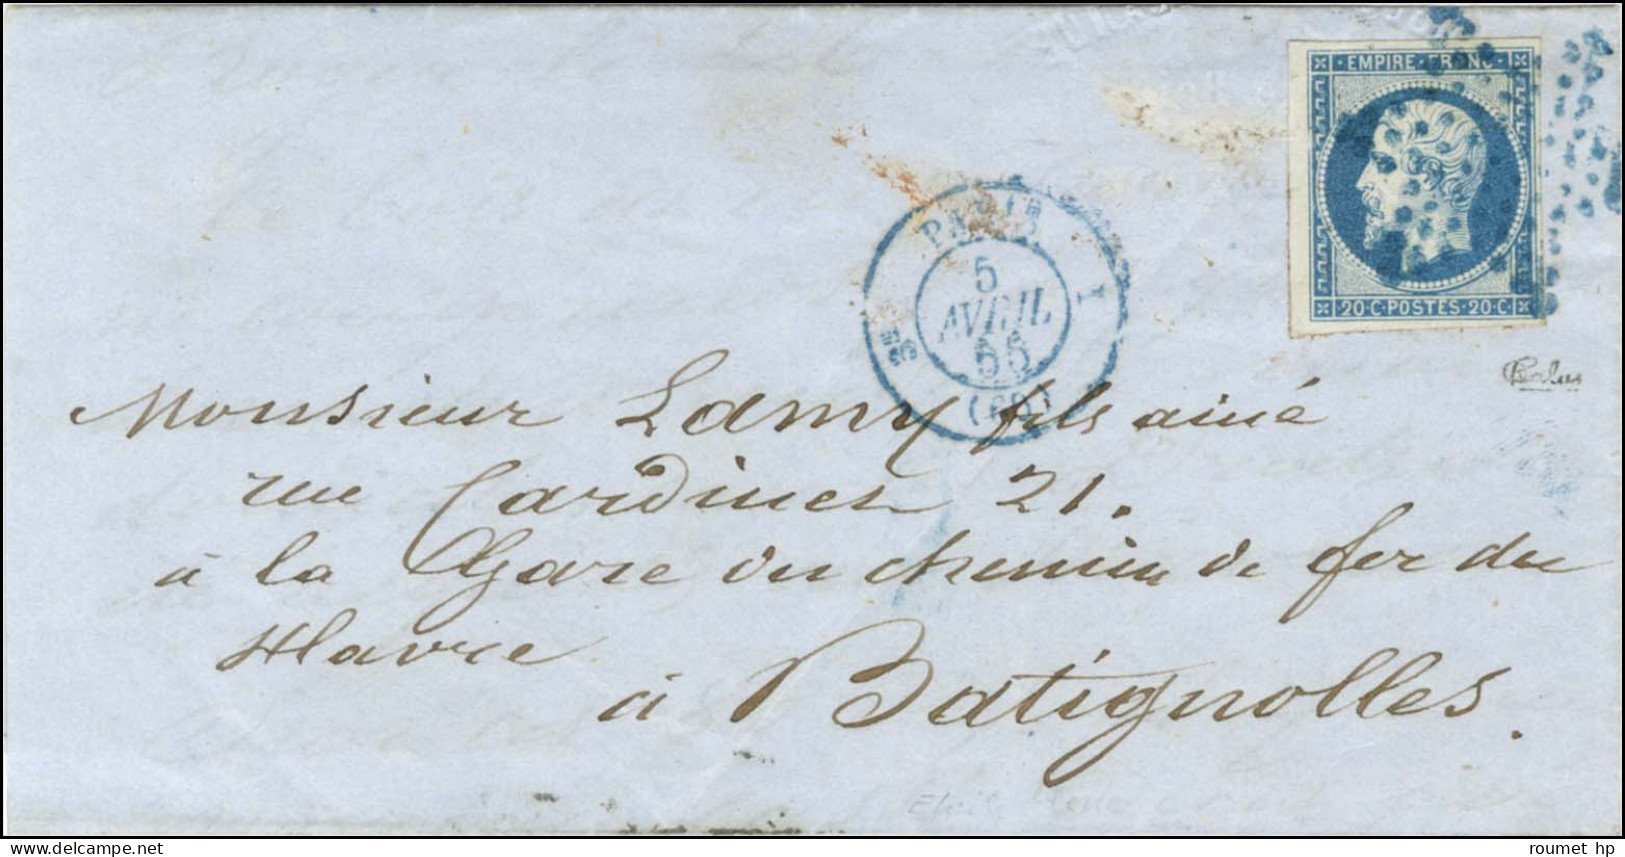 EMPIRE FRANC
20 C POSTES 20 C
PARIS
5
AVRIL
55
(60)
Monsieur Lamy fils ainé
rue Cardinet 21.
à la Gare du chemin de fer du
Havre
à Batignolles.
roumet hp